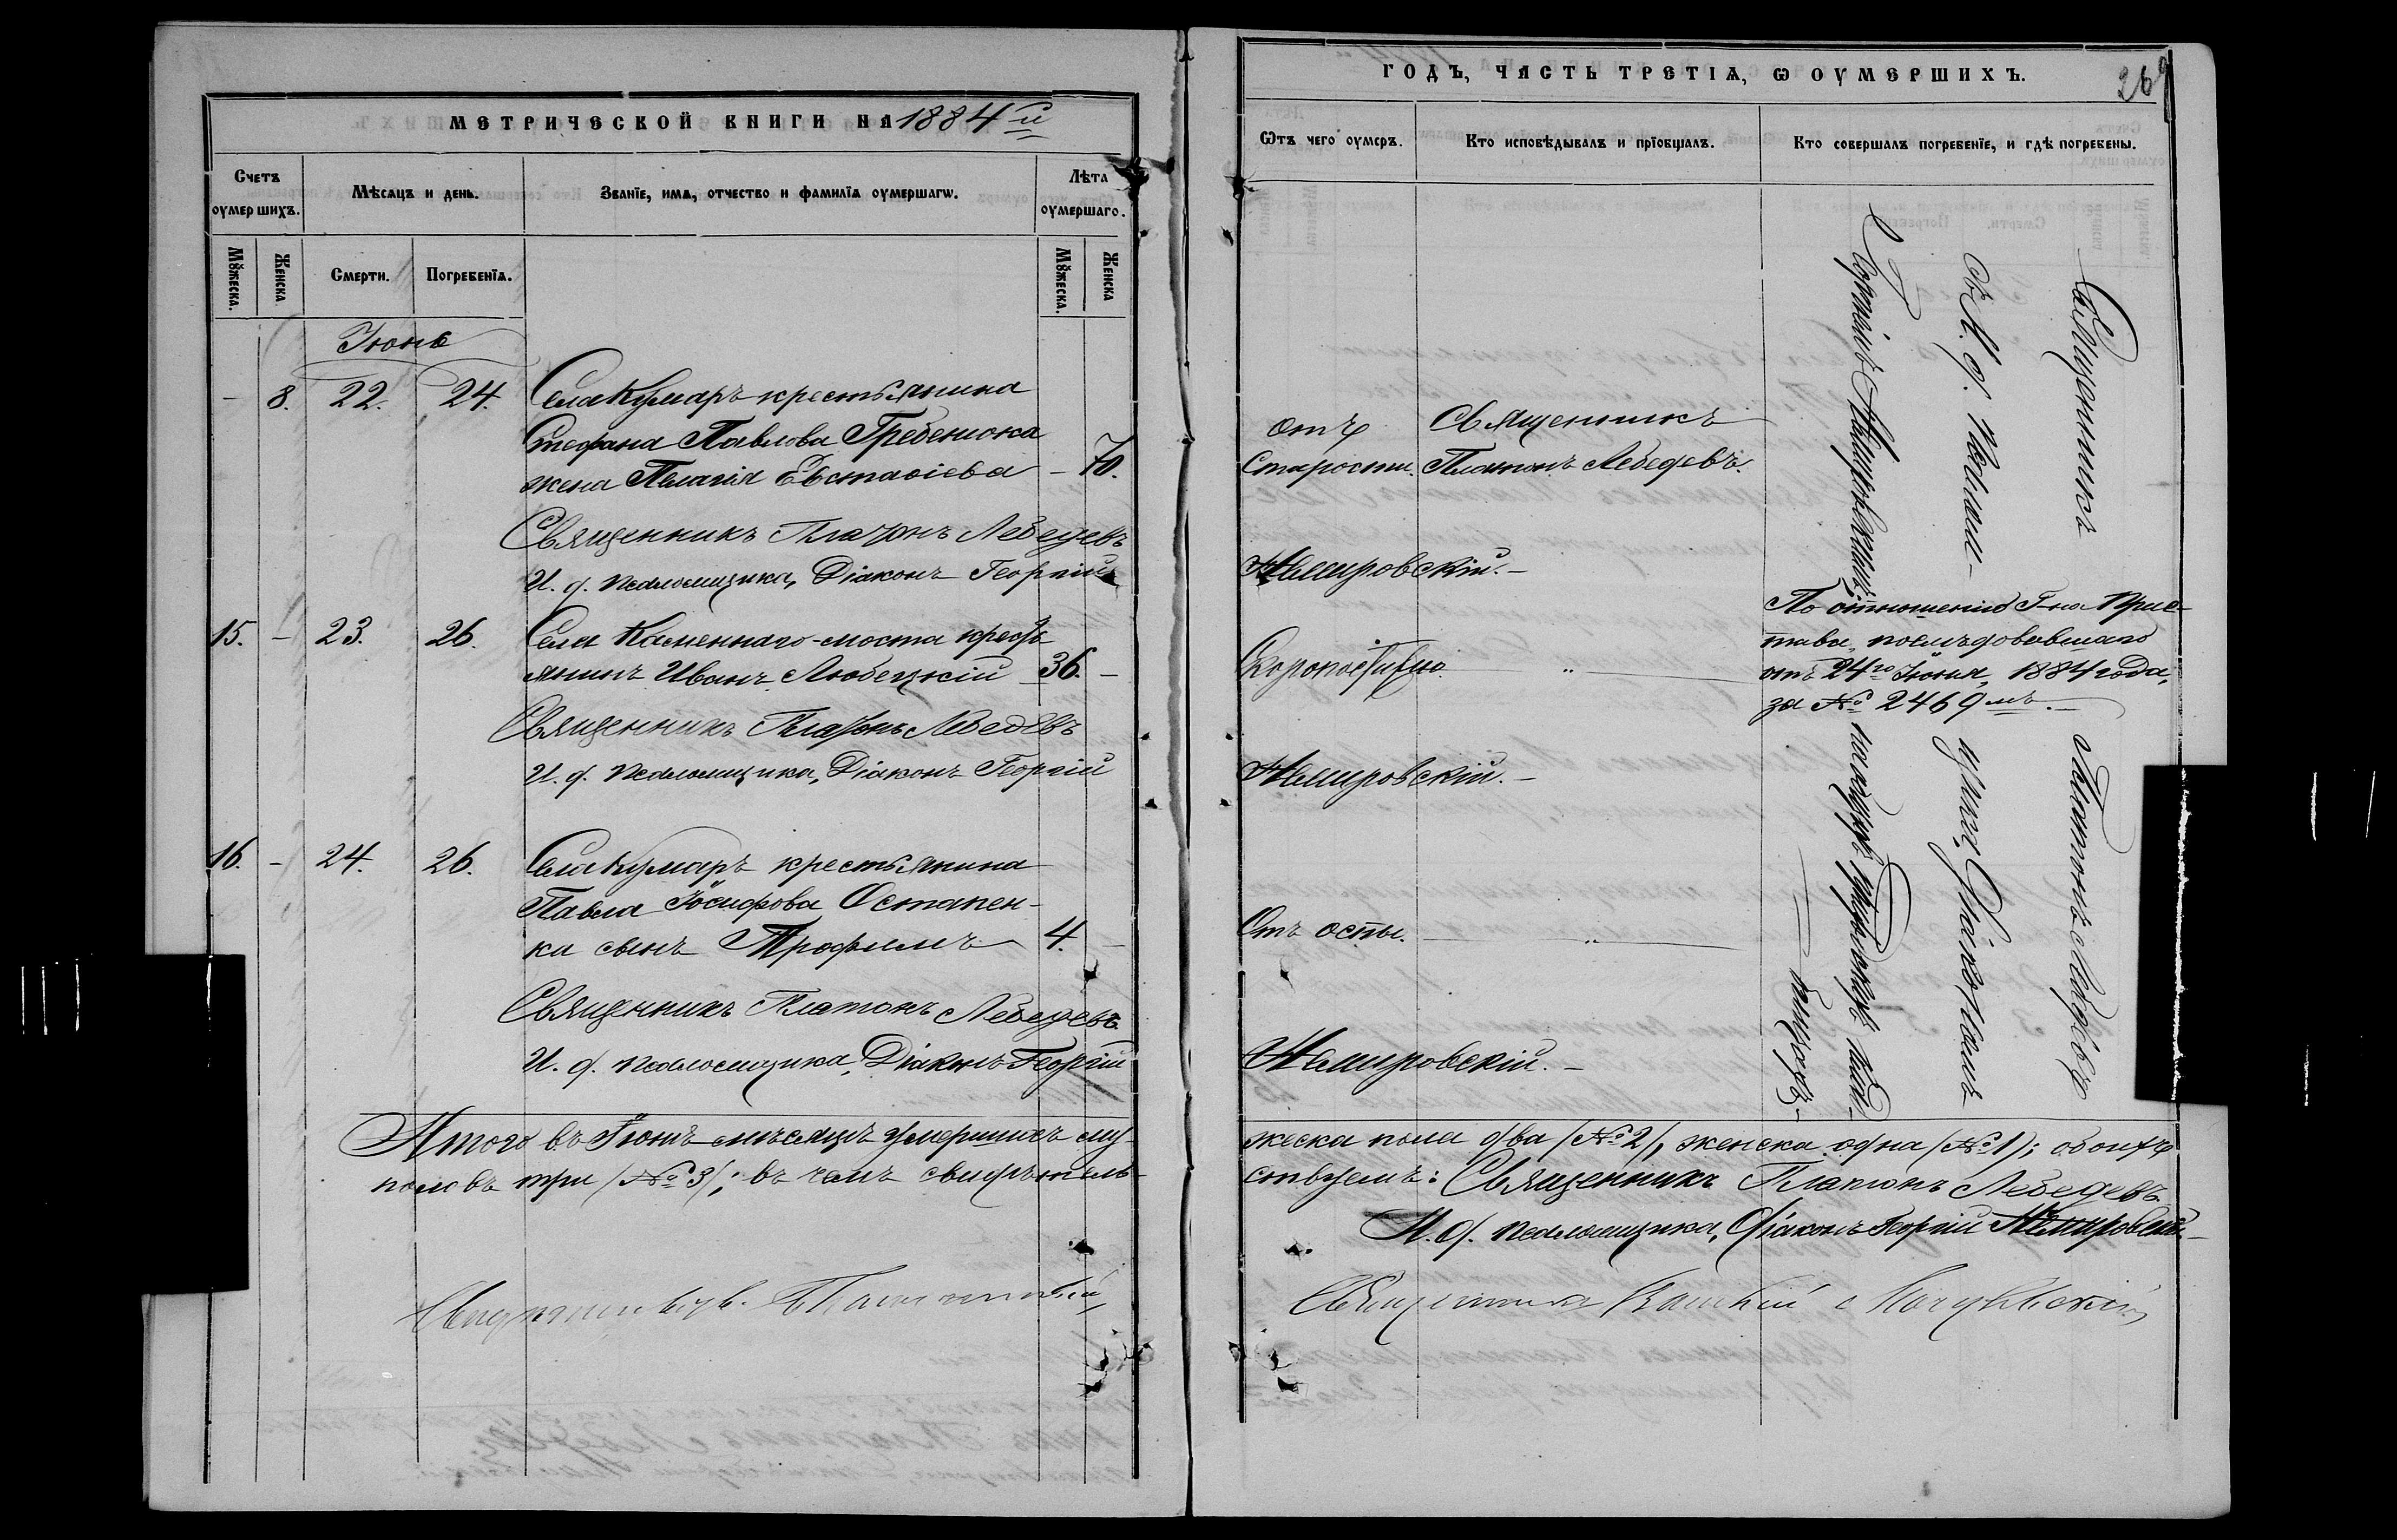 МЕТРИЧЕСКОЙ КНИГИ НА 1884 й
Счетъ оумершихъ.
Мѣсяцъ и день.
Званїе, имѧ, отчество и фамилїѧ оумершагѡ.
Лѣта оумершаго.
Мꙋжеска.
Женска
Смерти.
Погребенїѧ.
Мꙋжеска.
Женска
Іюнь
— 8. 22. 24. Села Кумаръ крестьянина
Стефана Павлова Гребенюка
жена Пелагія Евстафіева — 70.
Священникъ Платонъ Лебедевъ
И. д. псаломщика, Діаконъ Георгій
15. — 23. 26. Села Каменнаго-моста крест-
янинъ Иванъ Любецкій 36. —
Священникъ Платонъ Лебедевъ
И. д. псаломщика, Діаконъ Георгій
16. — 24. 26. Села Кумаръ крестьянина
Павла Іосифова Остапен-
ка сынъ Трофимъ 4. —
Священникъ Платонъ Лебедевъ
И. д. псаломщика, Діаконъ Георгій
Итого въ Іюнѣ мѣсяцѣ умершихъ му-
половъ три (№ 3); въ чемъ свидѣтель-
ГОДЪ, ЧАСТЬ ТРЕТІѦ, Ѡ ОУМЕРШИХЪ.
269
Ѿтъ чего оумеръ.
Кто исповѣдывалъ и прїобщалъ.
Кто совершалъ погребенїе, и гдѣ погребены.
отъ Священникъ
старости. Платонъ Лебедевъ.
Немировскій. —
По отношенію Г-на Прис-
тава, послѣдовавшаго
отъ 24го Іюня, 1884 года,
за № 2469 мъ. —
Скоропостижно. „
Немировскій. —
Отъ оспы. „
Немировскій. —
Священникъ Платонъ Лебедевъ
съ И. д. Псалом-щика, Діакономъ
Георгіемъ Немировскимъ на
кладбищѣ.
жеска пола два (№ 2), женска одна (№ 1); обоихъ
ствуемъ: Священникъ Платонъ Лебедевъ
И. д. псаломщика, Діаконъ Георгій Немировскій. —